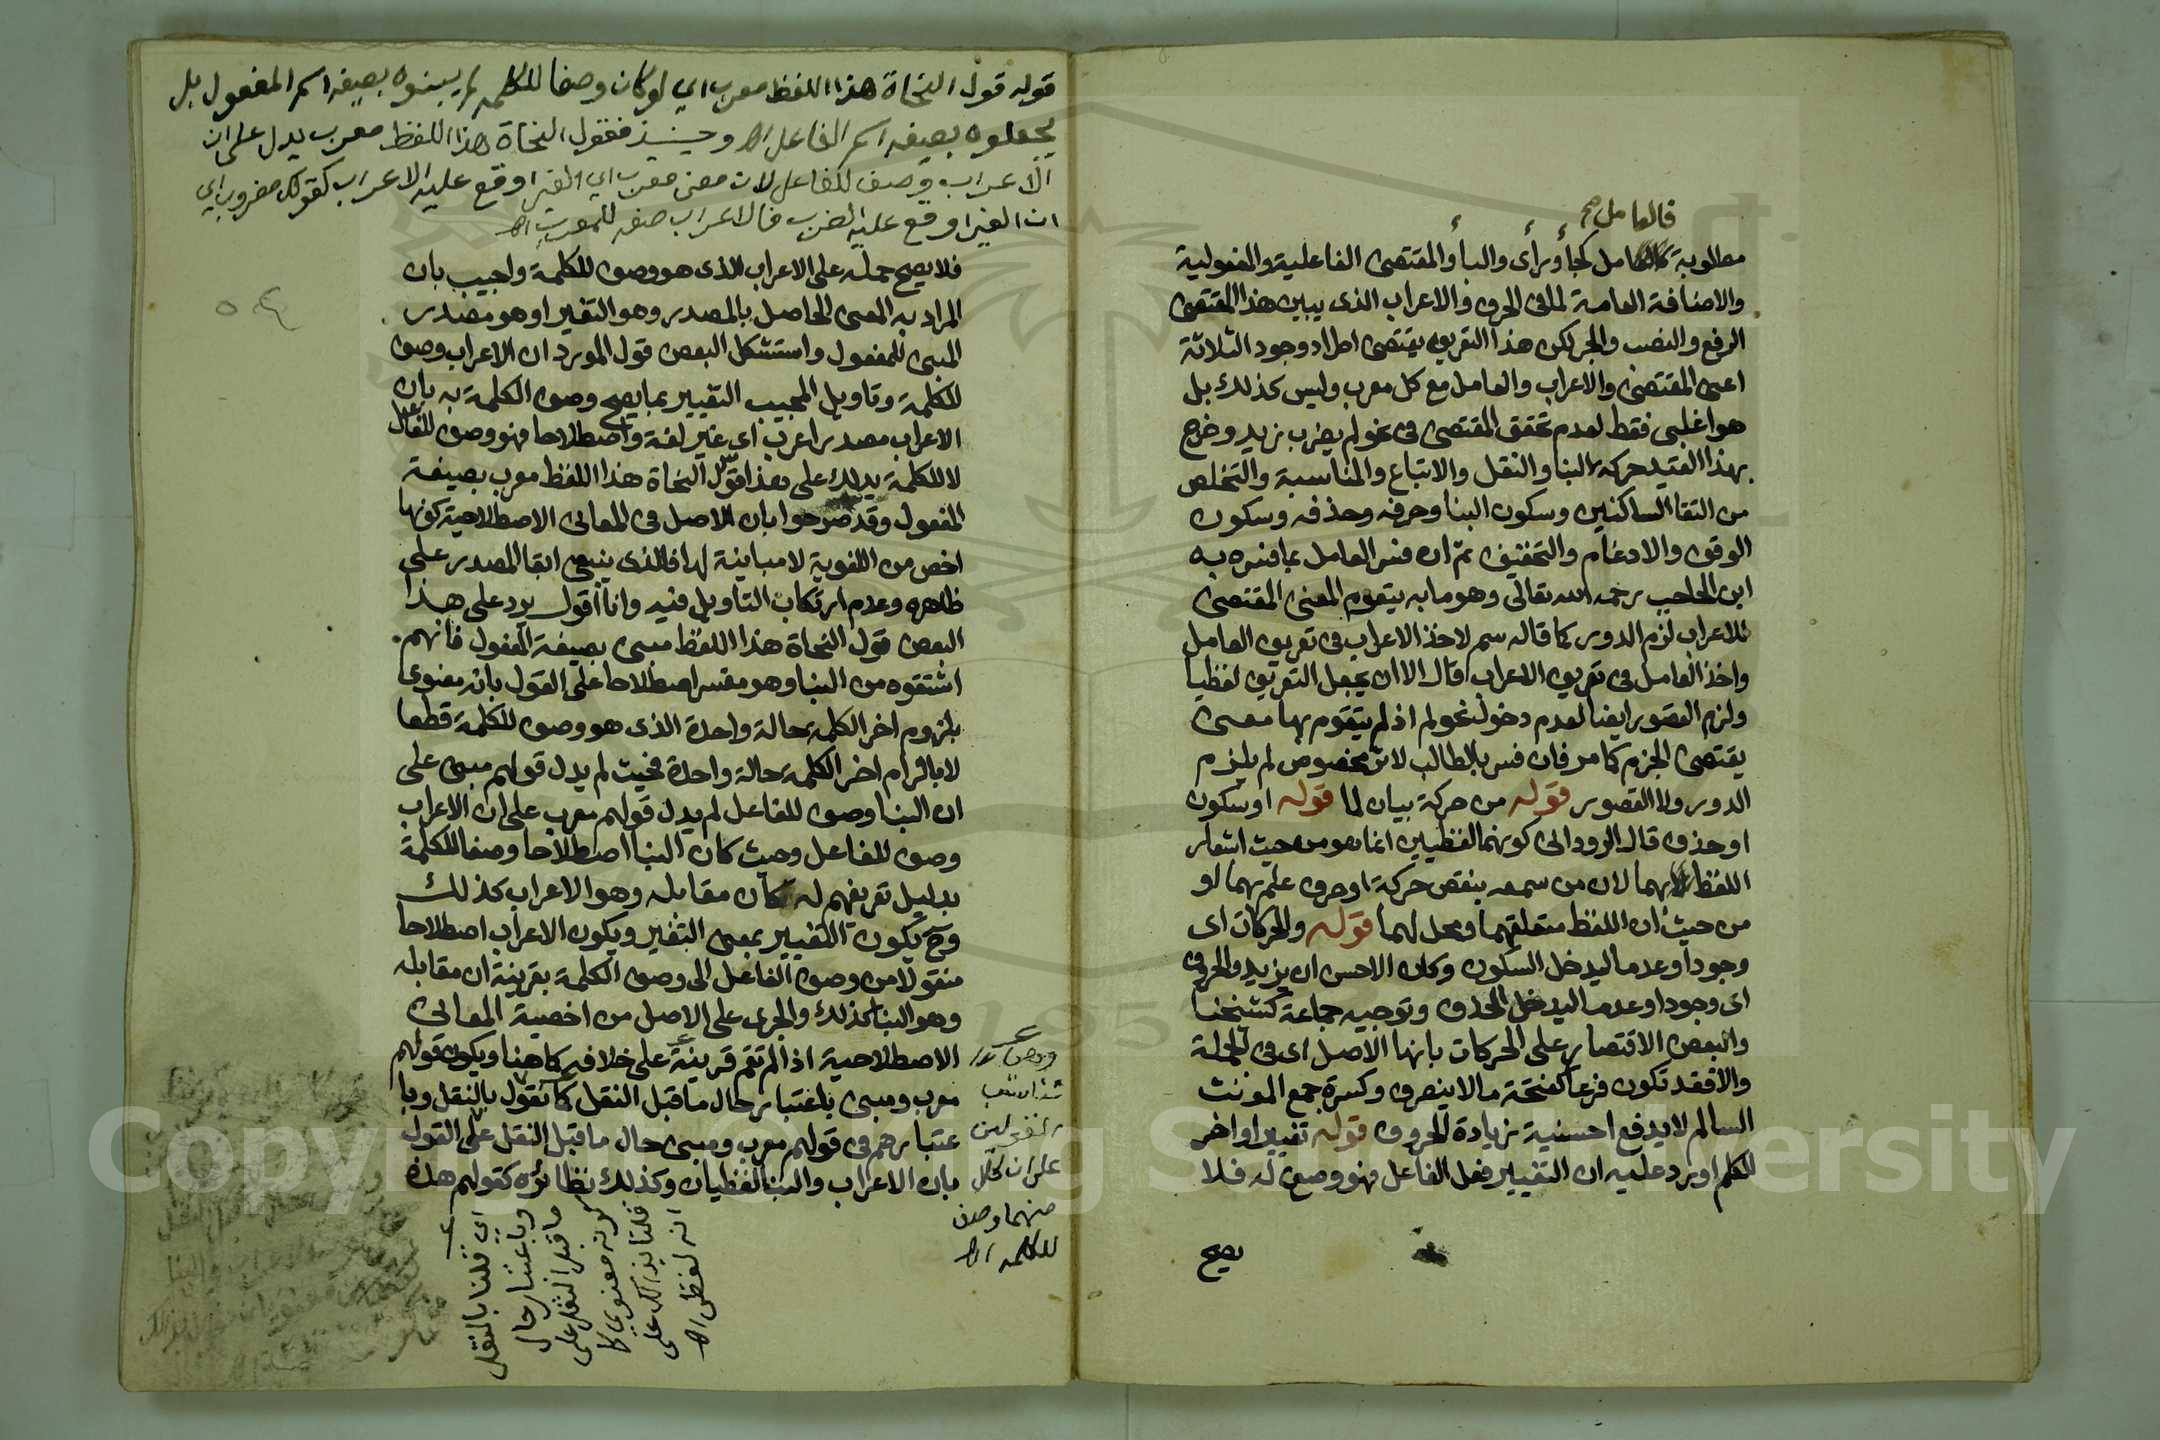 فالعامل صح
مطلوبة كالعامل كجأ ورأى والبأ والمقتضى الفاعلية والمفعولية
والاضافة العامة لما فى الحرف والاعراب الذى يبين هذا المقتضى
الرفع والنصب والجر لكن هذا التعريف يقتضى اطراد وجود الثلاثة
اعنى المقتضى والاعراب والعامل مع كل معرب وليس كذلك بل
هو اغلبى فقط لعدم تحقق المقتضى فى نحو لم يضرب زيد وخرج
بهذا القيد حركة البنا والنقل والاتباع والمناسبة والتخلص
من التقا الساكنين وسكون البنا وحرفه وحذفه وسكون
الوقف والادغام والتخفيف ثم ان فسر العامل بما فسره به
ابن الحاجب رحمه الله تعالى وهو ما به يتقوم المعنى المقتضى
للاعراب لزم الدور كما قاله سم لاخذ الاعراب فى تعريف العامل
واخذ العامل فى تعريف الاعراب قال الا ان يجعل التعريف لفظيا
ولزم القصور ايضا لعدم دخول نحو لم اذ لم يتقوم بها معنى
يقتضى الجزم كما مر فان فسر بالطالب لاثر مخصوص لم يلزم
الدور ولا القصور قوله من حركة بيان لما قوله او سكون
او حذف قال الرودانى كونهما لفظيين انما هو من حيث اشعار
اللفظ بهما لان من سمعه ينقص حركة او حرف علم بهما او
من حيث ان اللفظ متعلقهما ومحل لهما قوله والحركات اى
وجودا وعدما ليدخل السكون وكان الاحسن ان يزيد والحرف
اى وجودا وعدما ليدخل الحذف وتوجيه جماعة كشيخنا
والبعض الاقتصار على الحركات بانها الاصل اى فى الجملة
والا فقد تكون فرعا كفتحة ما لا ينصرف وكسرة جمع المونث
السالم لا يدفع احسنية زيادة الحروف قوله تغيير اواخر
الكلم اورد عليه ان التغيير فعل الفاعل فهو وصف له فلا
يصح
قوله قول النحاة هذا اللفظ معرب اي لو كان وصفا للكلمه لم يبنوه بصيغه اسم المفعول بل
يجعلوه بصيغه اسم الفاعل اه وحينئذ فقول النحاة هذا اللفظ معرب يدل على ان
الاعراب وصف للفاعل لان معنى معرب اي الغير اوقع عليه الاعراب كقولك مضروب اي
ان الغير اوقع عليه الضرب فالاعراب صفه للمعرب اه
فلا يصح حمله على الاعراب الذى هو وصف للكلمة واجيب بان
المراد به المعنى الحاصل بالمصدر وهو التغير او هو مصدر
المبنى للمفعول واستشكل البعض قول المورد ان الاعراب وصف
للكلمة وتاويل المجيب التغيير بما يصح وصف الكلمة به بان
الاعراب مصدر اعرب اى غير لغة واصطلاحا فهو وصف للفاعل
لا للكلمة يدلك على هذا قول النحاة هذا اللفظ معرب بصيغة
المفعول وقد صرحوا بان الاصل فى المعانى الاصطلاحية كونها
اخص من اللغوية لا مباينة لها فالذى ينبغى ابقا المصدر على
ظاهره وعدم ارتكاب التاويل فيه وانا اقول يرد على هذا
البعض قول النحاة هذا اللفظ مبنى بصيغة المفعول فانهم
اشتقوه من البنا وهو مفسر اصطلاحا على القول بانه معنوى
بلزوم اخر الكلمة حالة واحدة الذى هو وصف للكلمة قطعا
لا بالزام اخر الكلمة حالة واحدة فحيث لم يدل قولهم مبنى على
ان البنا وصف للفاعل لم يدل قولهم معرب على ان الاعراب
وصف للفاعل وحيث كان البنا اصطلاحا وصفا للكلمة
بدليل تعريفهم له كان مقابله وهو الاعراب كذلك
وح يكون التغيير بمعنى التغير ويكون الاعراب اصطلاحا
منقولا من وصف الفاعل الى وصف الكلمة بقرينة ان مقابله
وهو البنا كذلك والجرى على الاصل من اخصية المعانى
الاصطلاحية اذا لم تقم قرينة على خلافه كما هنا ويكون قولهم
معرب ومبنى باعتبار حال ما قبل النقل كما نقول بالنقل وبا
عتبارهم فى قولهم معرب ومبنى حال ما قبل النقل على القول
بان الاعراب والبنا لفظيان وكذلك نظائره كقولهم هذه
على ان كل
منهما وصف
للكلمه اه
اي قلنا بالنقل
وباعتبار حال
ما قبل النقل على
كونه معنويا كما
قلنا بذلك على
انه لفظي اه